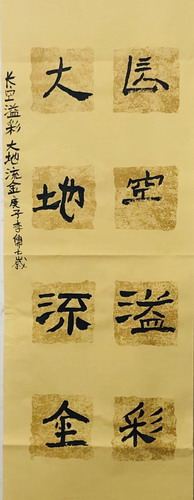 長空溢彩
大地流金
长空溢彩 大地流金 庚子李